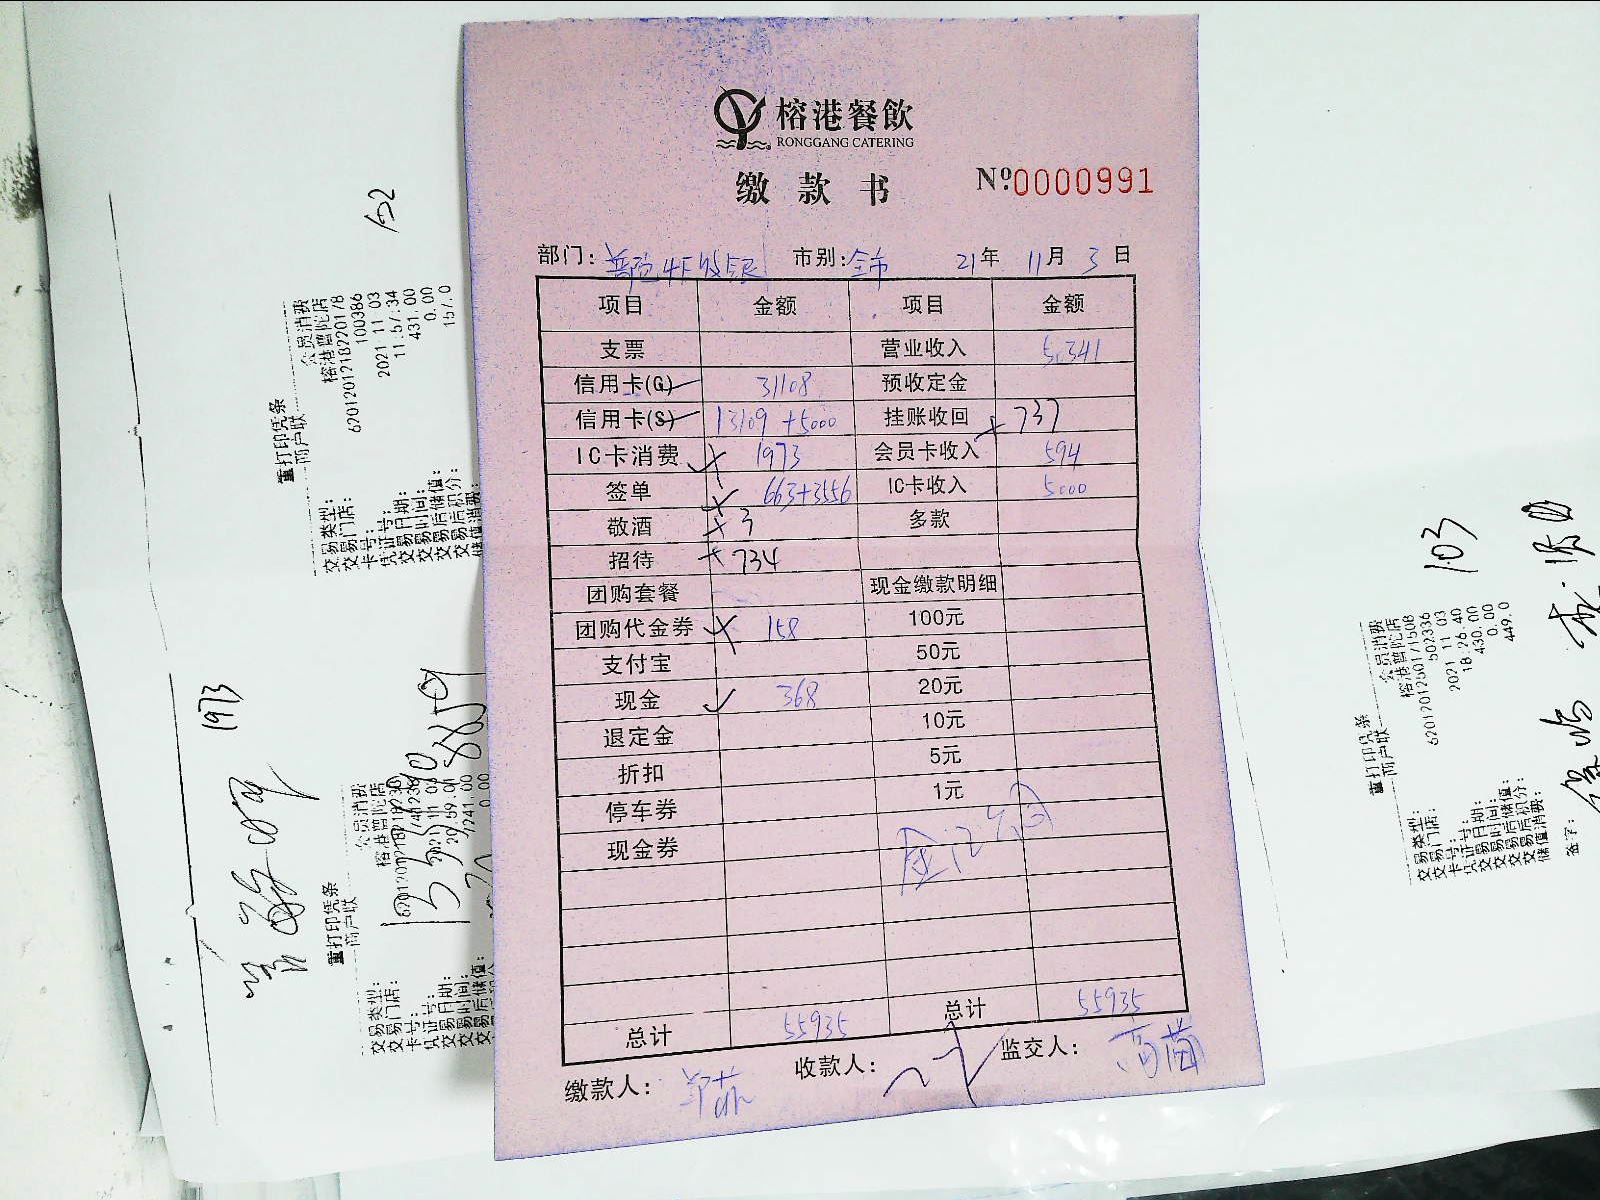 榕港餐飲
RONGGANG CATERING
缴款书 Nº0000991
部门: 普陀4F收银 市别:全市 21年 11月 3日
项目 金额 项目 金额
支票 营业收入 5,341
信用卡(G) 31108 预收定金
信用卡(S) 13109 +5000 挂账收回 737
IC卡消费 1973 会员卡收入 594
签单 663+3556 IC卡收入 5000
敬酒 3 多款
招待 734
团购套餐 现金缴款明细
团购代金券 158 100元
支付宝 50元
现金 368 20元
退定金 10元
折扣 5元
停车券 1元
现金券
总计 55935 总计 55935
缴款人: 收款人: 监交人:
152
重打印凭条
商户联
交易类型: 会员消费
交易门店: 榕港普陀店
卡号: 6201201218220178
凭证号: 100386
交易日期: 2021 11 03
交易时间: 11:57:34
交易后储值: 431.00
交易后积分: 0.00
储值消费: 157.0
1973
重打印凭条
商户联
交易类型: 会员消费
交易门店: 榕港普陀店
卡号:
凭证号:
交易日期: 2021 11 03
交易时间:
交易后储值:
交易后积分: 0.00
103
重打印凭条
商户联
交易类型: 会员消费
交易门店: 榕港普陀店
卡号:
凭证号: 502336
交易日期: 2021 11 03
交易时间: 18:26:40
交易后储值: 430.00
交易后积分: 0.00
储值消费: 449.0
签字: